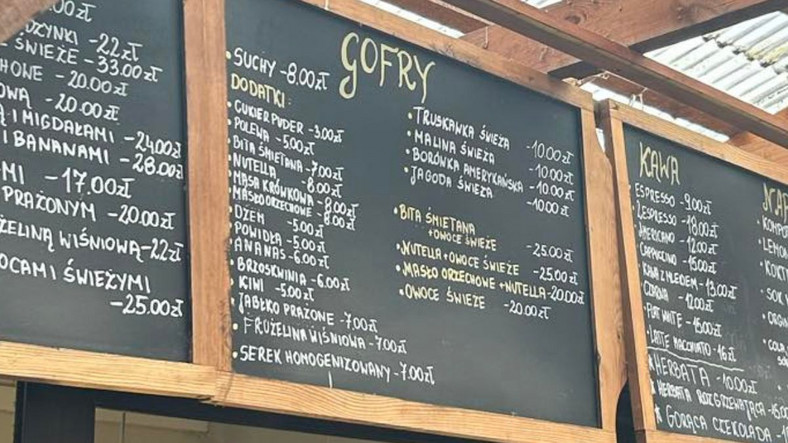 .00zł
-22zł
ŚWIEŻE -33.00zł
-20.00zł
-20.00zł
I MIGDAŁAMI -24.00zł
I BANANAMI -28.00zł
-17.00zł
PRAŻONYM -20.00zł
WIŚNIOWĄ-22zł
ŚWIEŻYMI
-25.00zł
GOFRY
•SUCHY -8.00zł
DODATKI:
•CUKIER PUDER -3.00zł
•POLEWA -5.00zł
•BITA ŚMIETANA -7.00zł
•NUTELLA -8.00zł
•MASA KRÓWKOWA -8.00zł
•MASŁO ORZECHOWE -8.00zł
•DŻEM -5.00zł
•POWIDŁA -5.00zł
•ANANAS -6.00zł
•BRZOSKWINIA -6.00zł
•KIWI -5.00zł
•JABŁKO PRAŻONE -7.00zł
•FRUŻELINA WIŚNIOWA -7.00zł
•SEREK HOMOGENIZOWANY -7.00zł
•TRUSKAWKA ŚWIEŻA -10.00zł
•MALINA ŚWIEŻA -10.00zł
•BORÓWKA AMERYKAŃSKA -10.00zł
•JAGODA ŚWIEŻA -10.00zł
•BITA ŚMIETANA
+OWOCE ŚWIEŻE -25.00zł
•NUTELLA+OWOCE ŚWIEŻE -25.00zł
•MASŁO ORZECHOWE+NUTELLA-20.00zł
•OWOCE ŚWIEŻE -20.00zł
KAWA
ESPRESSO -9.00zł
2ESPRESSO -18.00zł
AMERICANO -12.00zł
CAPPUCCINO -15.00zł
KAWA Z MLEKIEM -13.00zł
CZARNA -12.00zł
FLAT WHITE -15.00zł
LATTE MACCHIATO -16zł
*HERBATA -10.00zł
*HERBATA ROZGRZEWAJĄCA
*GORĄCA CZEKOLADA